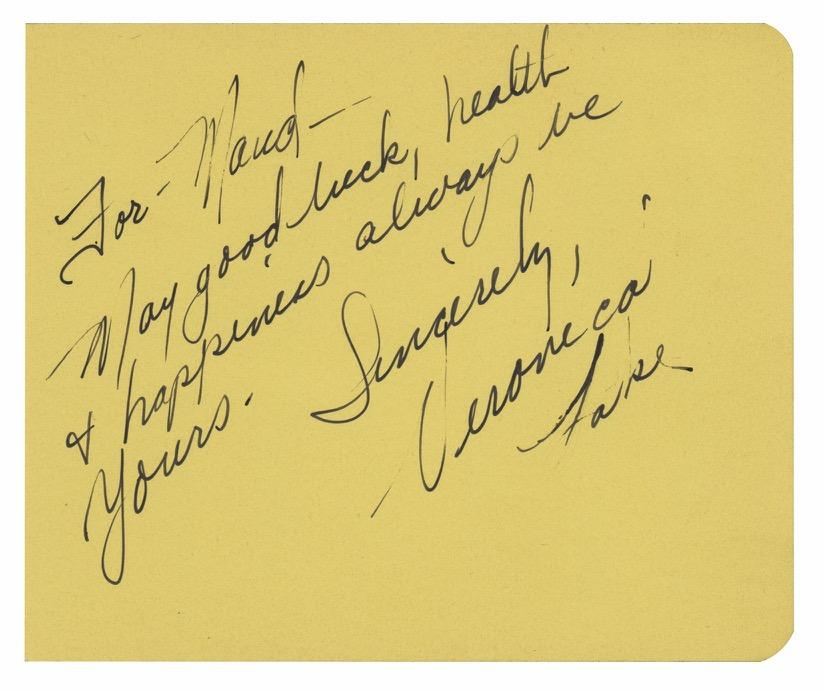 For - Maud —
May good luck, health
& happiness always be
Yours. Sincerely,
Veronica
Lake